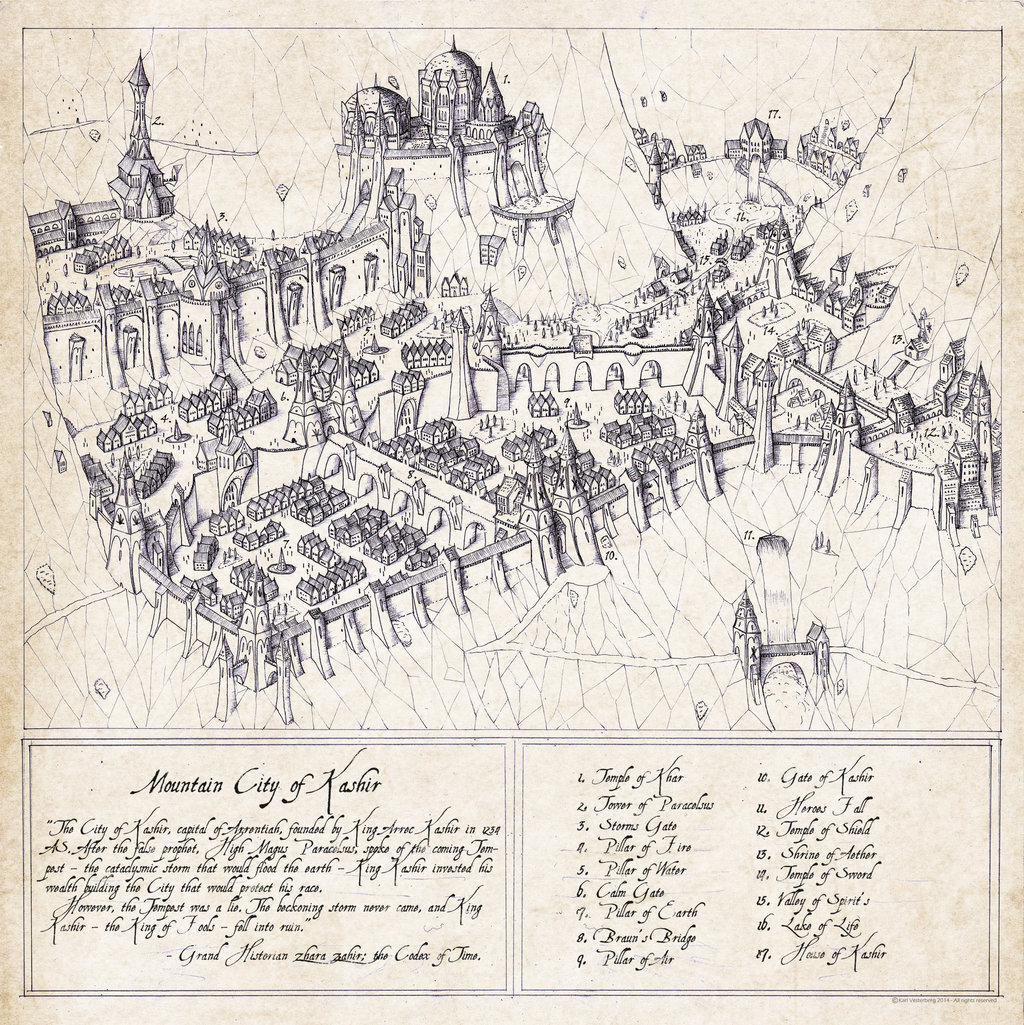 1.
2.
17.
3.
16.
15.
14.
13.
5.
6.
4.
9.
12.
8.
10.
11.
Mountain City of Kashir
"The City of Kashir, capital of Azrentiah, founded by King Arrec Kashir in 1239
AS. After the false prophet, High Magus Paracelsus, spoke of the coming Tem-
pest - the cataclysmic storm that would flood the earth - King Kashir invested his
wealth building the City that would protect his race.
However, the Tempest was a lie. The beckoning storm never came, and King
Kashir - the King of Fools - fell into ruin."
- Grand Historian zhara zahir: the Codex of Time.
1. Temple of Khar
2. Tower of Paracelsus
3. Storms Gate
4. Pillar of Fire
5. Pillar of Water
6. Calm Gate
7. Pillar of Earth
8. Braun's Bridge
9. Pillar of Air
10. Gate of Kashir
11. Heroes Fall
12. Temple of Shield
13. Shrine of Aether
14. Temple of Sword
15. Valley of Spirit's
16. Lake of Life
17. House of Kashir
©Karl Vesterberg 2014 - All rights reserved